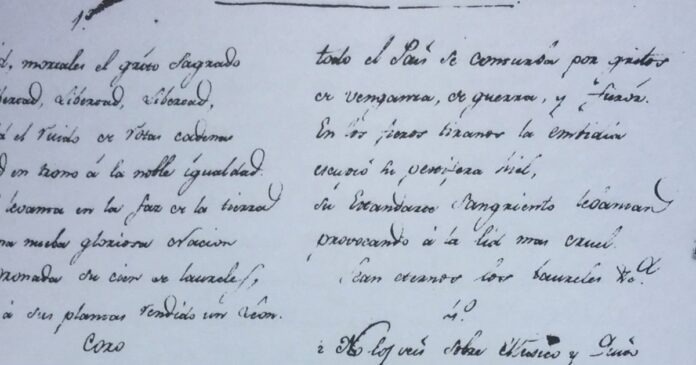 1º
d, mortales el grito Sagrado
bertad, Libertad, Libertad,
d el ruido de rotas cadenas
d en trono á la noble igualdad.
levanta en la faz de la tierra
na nueba gloriosa Nacion
ronada su cien de laureles,
á sus plantas rendido un Leon.
Coro
todo el Pais se conturba por gritos
de venganza, de guerra, y furor.
En los fieros tiranos la embidia
escupió su pestifera hiel,
su Estandarte Sangriento levantan
provocando á la lid mas cruel.
Sean eternos los Laureles &ª
4º
¿No los veis sobre Mexico y Quito